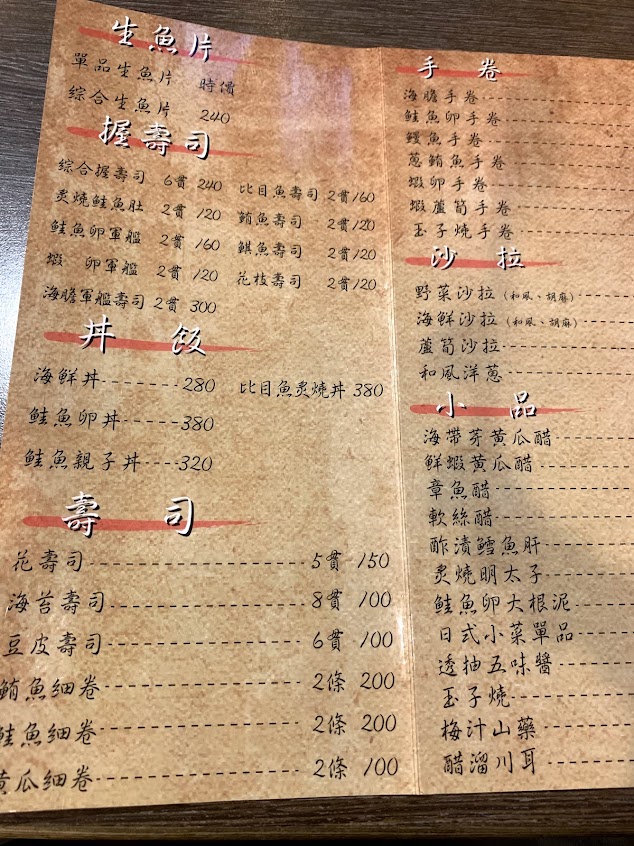 生魚片
單品生魚片 時價
綜合生魚片 240
握壽司
綜合握壽司 6貫 240
炙燒鮭魚肚 2貫 120
鮭魚卵軍艦 2貫 160
蝦 卵軍艦 2貫 120
海膽軍艦壽司 2貫 300
比目魚壽司 2貫 160
鮪魚壽司 2貫 120
鯕魚壽司 2貫 120
花枝壽司 2貫 120
丼 飯
海鮮丼-------280
鮭魚卵丼-----380
鮭魚親子丼----320
比目魚炙燒丼 380
壽 司
花壽司 5貫 150
海苔壽司 8貫 100
豆皮壽司 6貫 100
鮪魚細卷 2條 200
鮭魚細卷 2條 200
黃瓜細卷 2條 100
手 卷
海膽手卷
鮭魚卵手卷
鰻魚手卷
蔥鮪魚手卷
蝦卵手卷
蝦蘆筍手卷
玉子燒手卷
沙 拉
野菜沙拉(和風、胡麻)
海鮮沙拉(和風、胡麻)
蘆筍沙拉
和風洋蔥
小 品
海帶芽黃瓜醋
鮮蝦黃瓜醋
章魚醋
軟絲醋
酢漬鱈魚肝
炙燒明太子
鮭魚卵大根泥
日式小菜單品
透抽五味醬
玉子燒
梅汁山藥
醋溜川耳